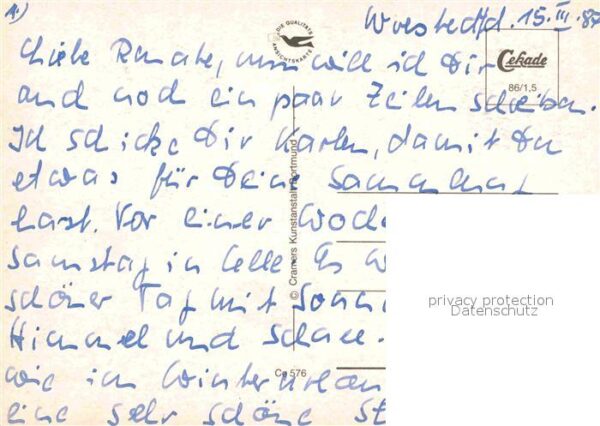 1.) Wustedtfd. 15. III. 87
DIE QUALITÄTS ANSICHTSKARTE
Liebe Renate, nun will ich Dir
Cekade
86/1,5
auch noch ein paar Zeilen schreiben.
Ich schicke Dir Karten, damit Du
etwas für Deine Sammlung
hast. Vor einer Woche
© Cramers Kunstanstalt Dortmund
Samstag in Celle. Es w
schöner Tag mit Sonn
privacy protection
Datenschutz
Himmel und Schnee.
Ce 576
wie im Winterurlau
eine sehr schöne St